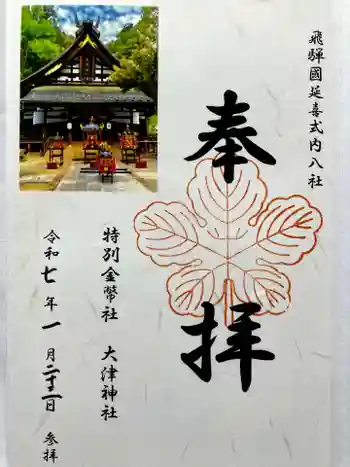 飛騨國延喜式内八社
奉拝
特別金幣社 大津神社
令和七年一月二十二日 参拝